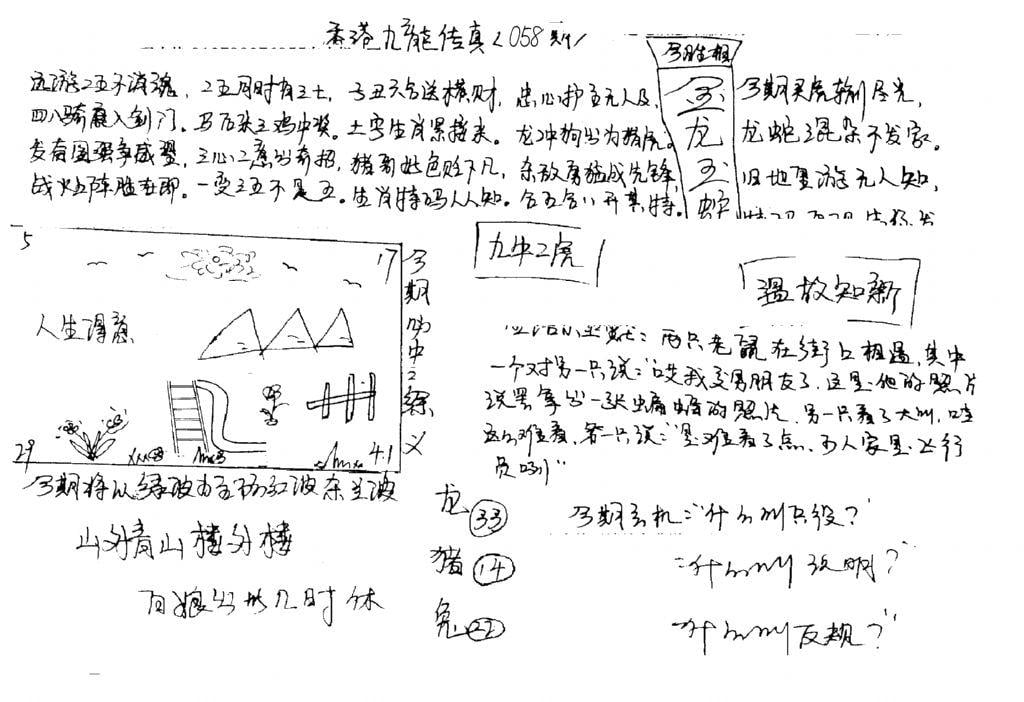 香港九龍传真（058期）
今期生相
玄
龙
玄
蛇
远游二五不消魂，二五同时有三七，子丑六合送横财，忠心护主无人及，
四八骑鹿入剑门。马后来主鸡中奖。土字生肖累接来。龙冲狗出为猪虎。
发奋图强争成盟，三心二意出奇招，猪哥好色贬下凡，杀敌勇猛战先锋，
战火阵胜在即。一变三五不是五。生肖特码人人知。合五合八开其特。
今期买虎输尽光，
龙蛇混杂不发家。
旧地重游无人知，
5
17
人生得意
29
41
今期吻中之综义
九牛二虎
温故知新
两只老鼠在街口相遇，其中
一个对另一只说："哎我交男朋友了，这是他的照片
说罢拿出一张蝙蝠的照片，另一只看了大叫，哇
这么难看，答一只说："是难看了点，可人家是飞行
员啊"
今期将以绿波为主防红波杂兰波
山外青山楼外楼
百娘出出几时休
龙 33
猪 14
兔 22
今期玄机："什么叫只役？"
"什么叫说明？"
"什么叫反规？"